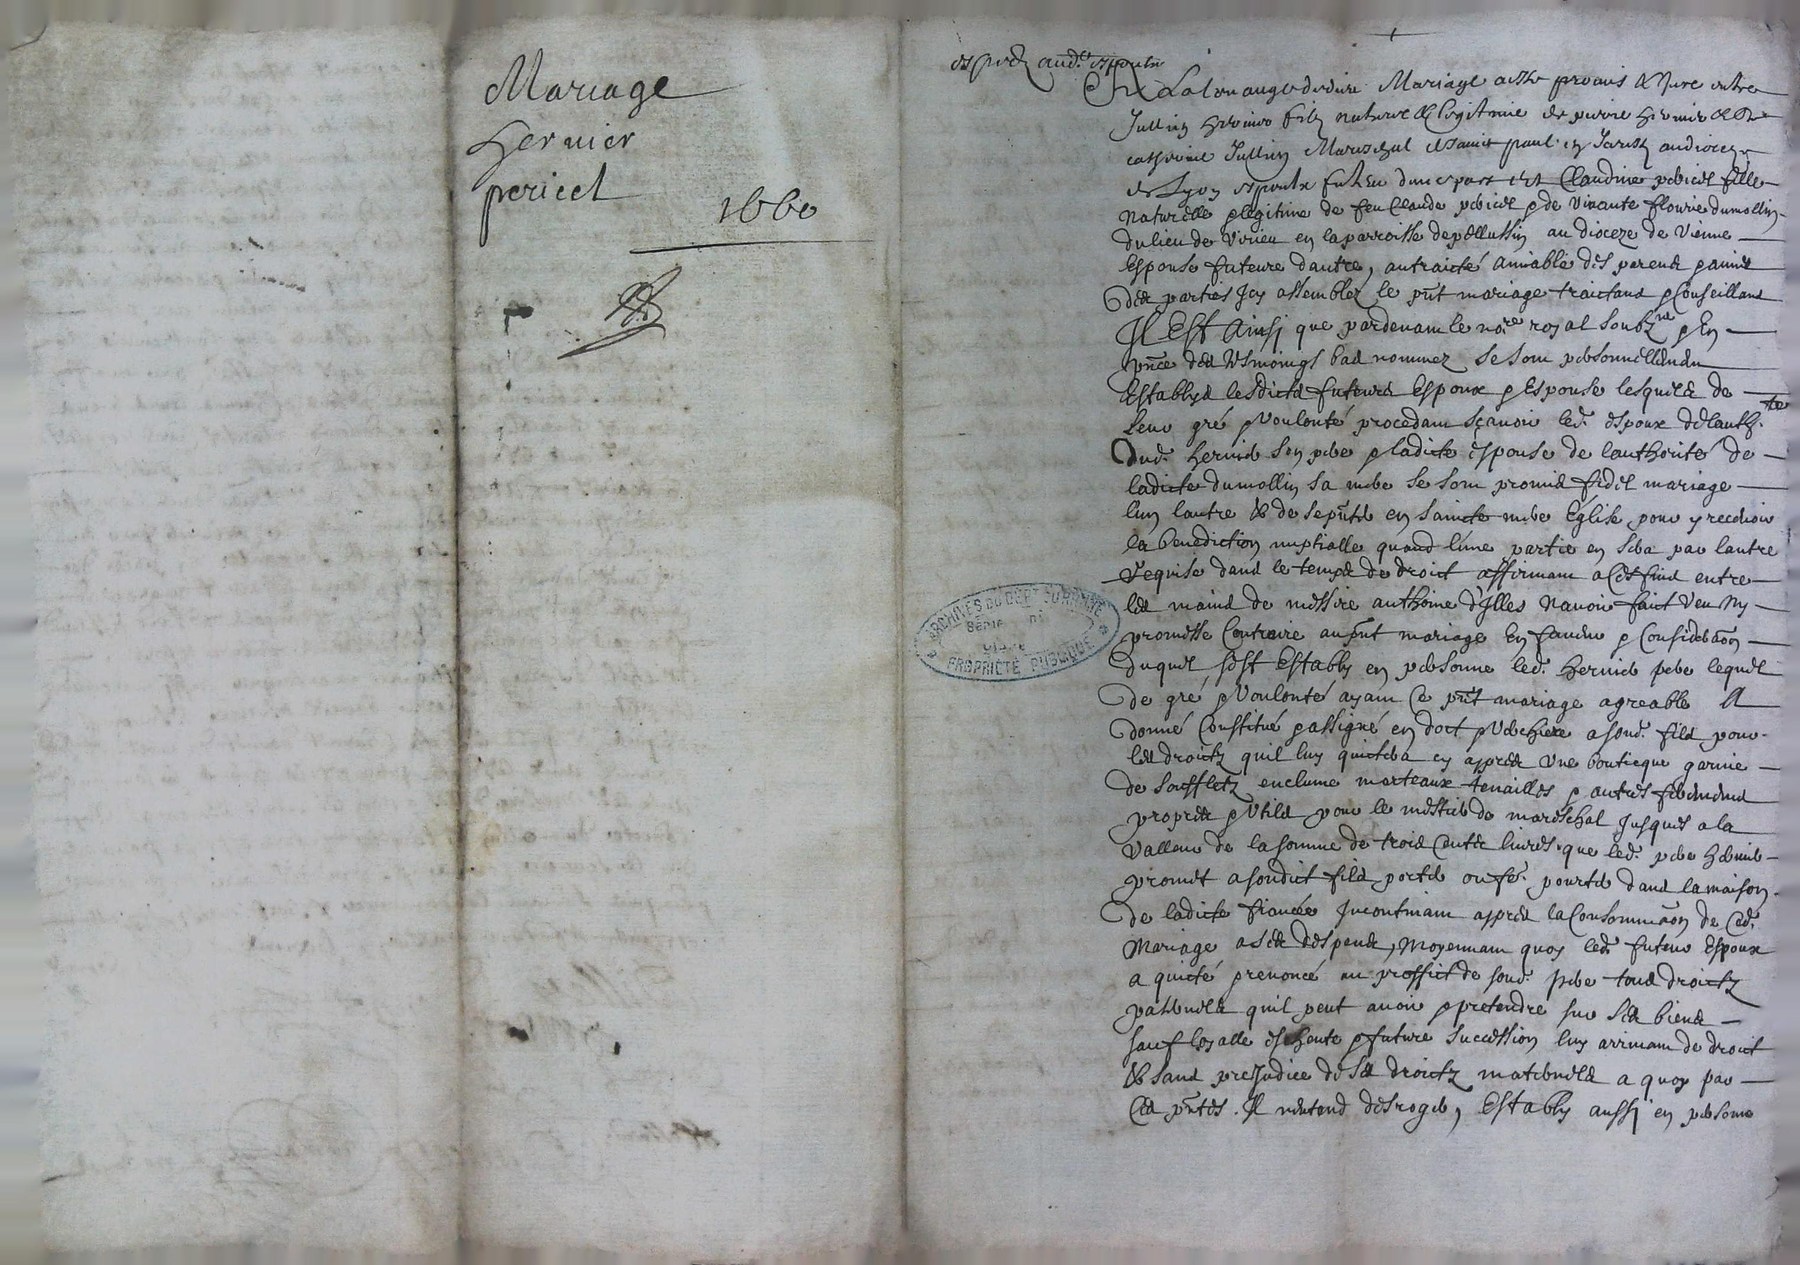 Mariage
Hernier
pericel
1660
exped. aud. espoulx
A La louange de dieu Mariage a esté promis & Juré entre
Jullin hernier filz naturel & legitime de pierre hernier & de
catherine Jullin Mareschal de sainct paul en Jarestz au dioceze
de Lyon espoulx futeur d'une part Et Claudine pericel fille
naturelle & legitime de feu Claude pericel & de vivante fleurie dumollin
du lieu de virieu en la parroisse de pellussin au dioceze de vienne
Espouse futeure d'autre, au traicté amiable des parens & amis
des parties Icy assemblez le pñt mariage traictans & Conseillans
Il Est Ainsi que pardevant le nore royal soubzne & En
pñce des tesmoings bas nommez se sont personnellement
Establys lesdicts futeurs Espoux & Espouse lesquels de
leur gré & voulonté procedant sçavoir led. espoux de l'auth.te
dud. hernier son pere & ladicte espouse de l'authorité de
ladicte dumollin sa mere se sont promis fidel mariage
l'un l'autre & de se pñter en saincte mere Eglise pour y recepvoir
la benediction nuptialle quand l'une partie en sera par l'autre
requise dans le temps de droict affirmant a ces fins entre
les mains de messire anthoine d'Illes n'avoir faict veu ny
promesse Contraire au pñt mariage En faveur & Consideraõn
duquel s'est Estably en personne led. hernier pere lequel
de gré & voulonté ayant Ce pñt mariage agreable A
donné Constitué & assigné en doct & verchiere a sond. fils pour
les droictz qu'il luy quictera cy appres une bouticque garnie
de souffletz enclume marteaux tenailles & autres ferrements
propres & utils pour le mestier de mareschal Jusques a la
valleur de la somme de trois Cents livres que led. pere hernier
promet a sondict fils porter ou fe. porter dans la maison
de ladicte fiancée Incontinant appres la Consommaõn de Ced.
Mariage a ses despens, Moyennant quoy led. futeur Espoux
a quicté & renoncé au proffict de sond. pere tous droictz
paternels qu'il peut avoir & pretendre sur ses biens
sauf loyalle escheute & future succession luy arrivant de droict
& sans preJudice de ses droictz maternels a quoy par
Ces pñtes Il n'entend desroger, Estably aussi en personne
ARCHIVES DU DEPT DU RHONE
Série
PROPRIÉTÉ PUBLIQUE